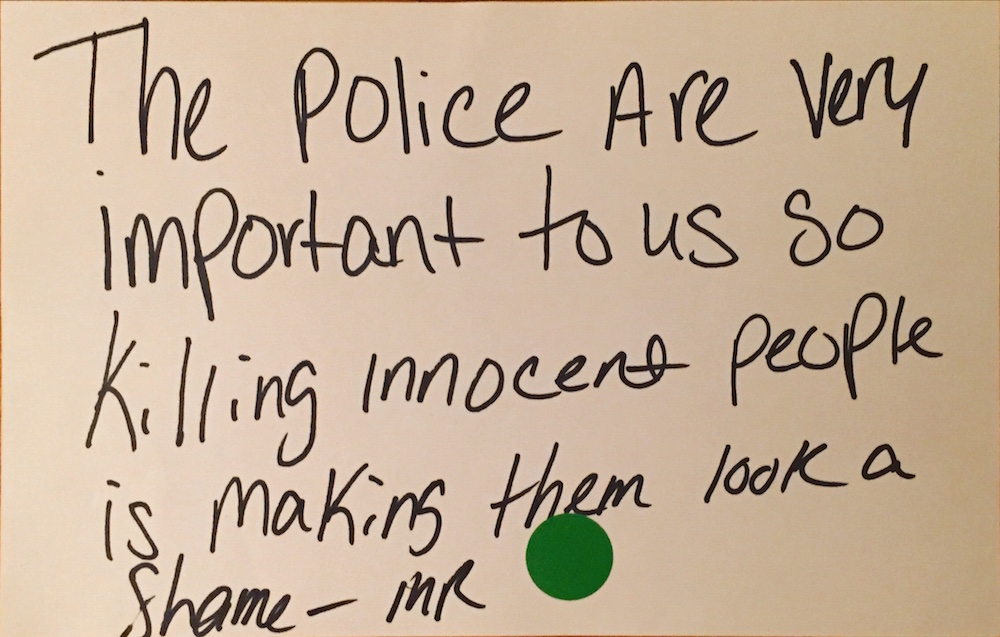 The Police Are Very
important to us so
Killing innocent people
is making them look a
Shame - MR